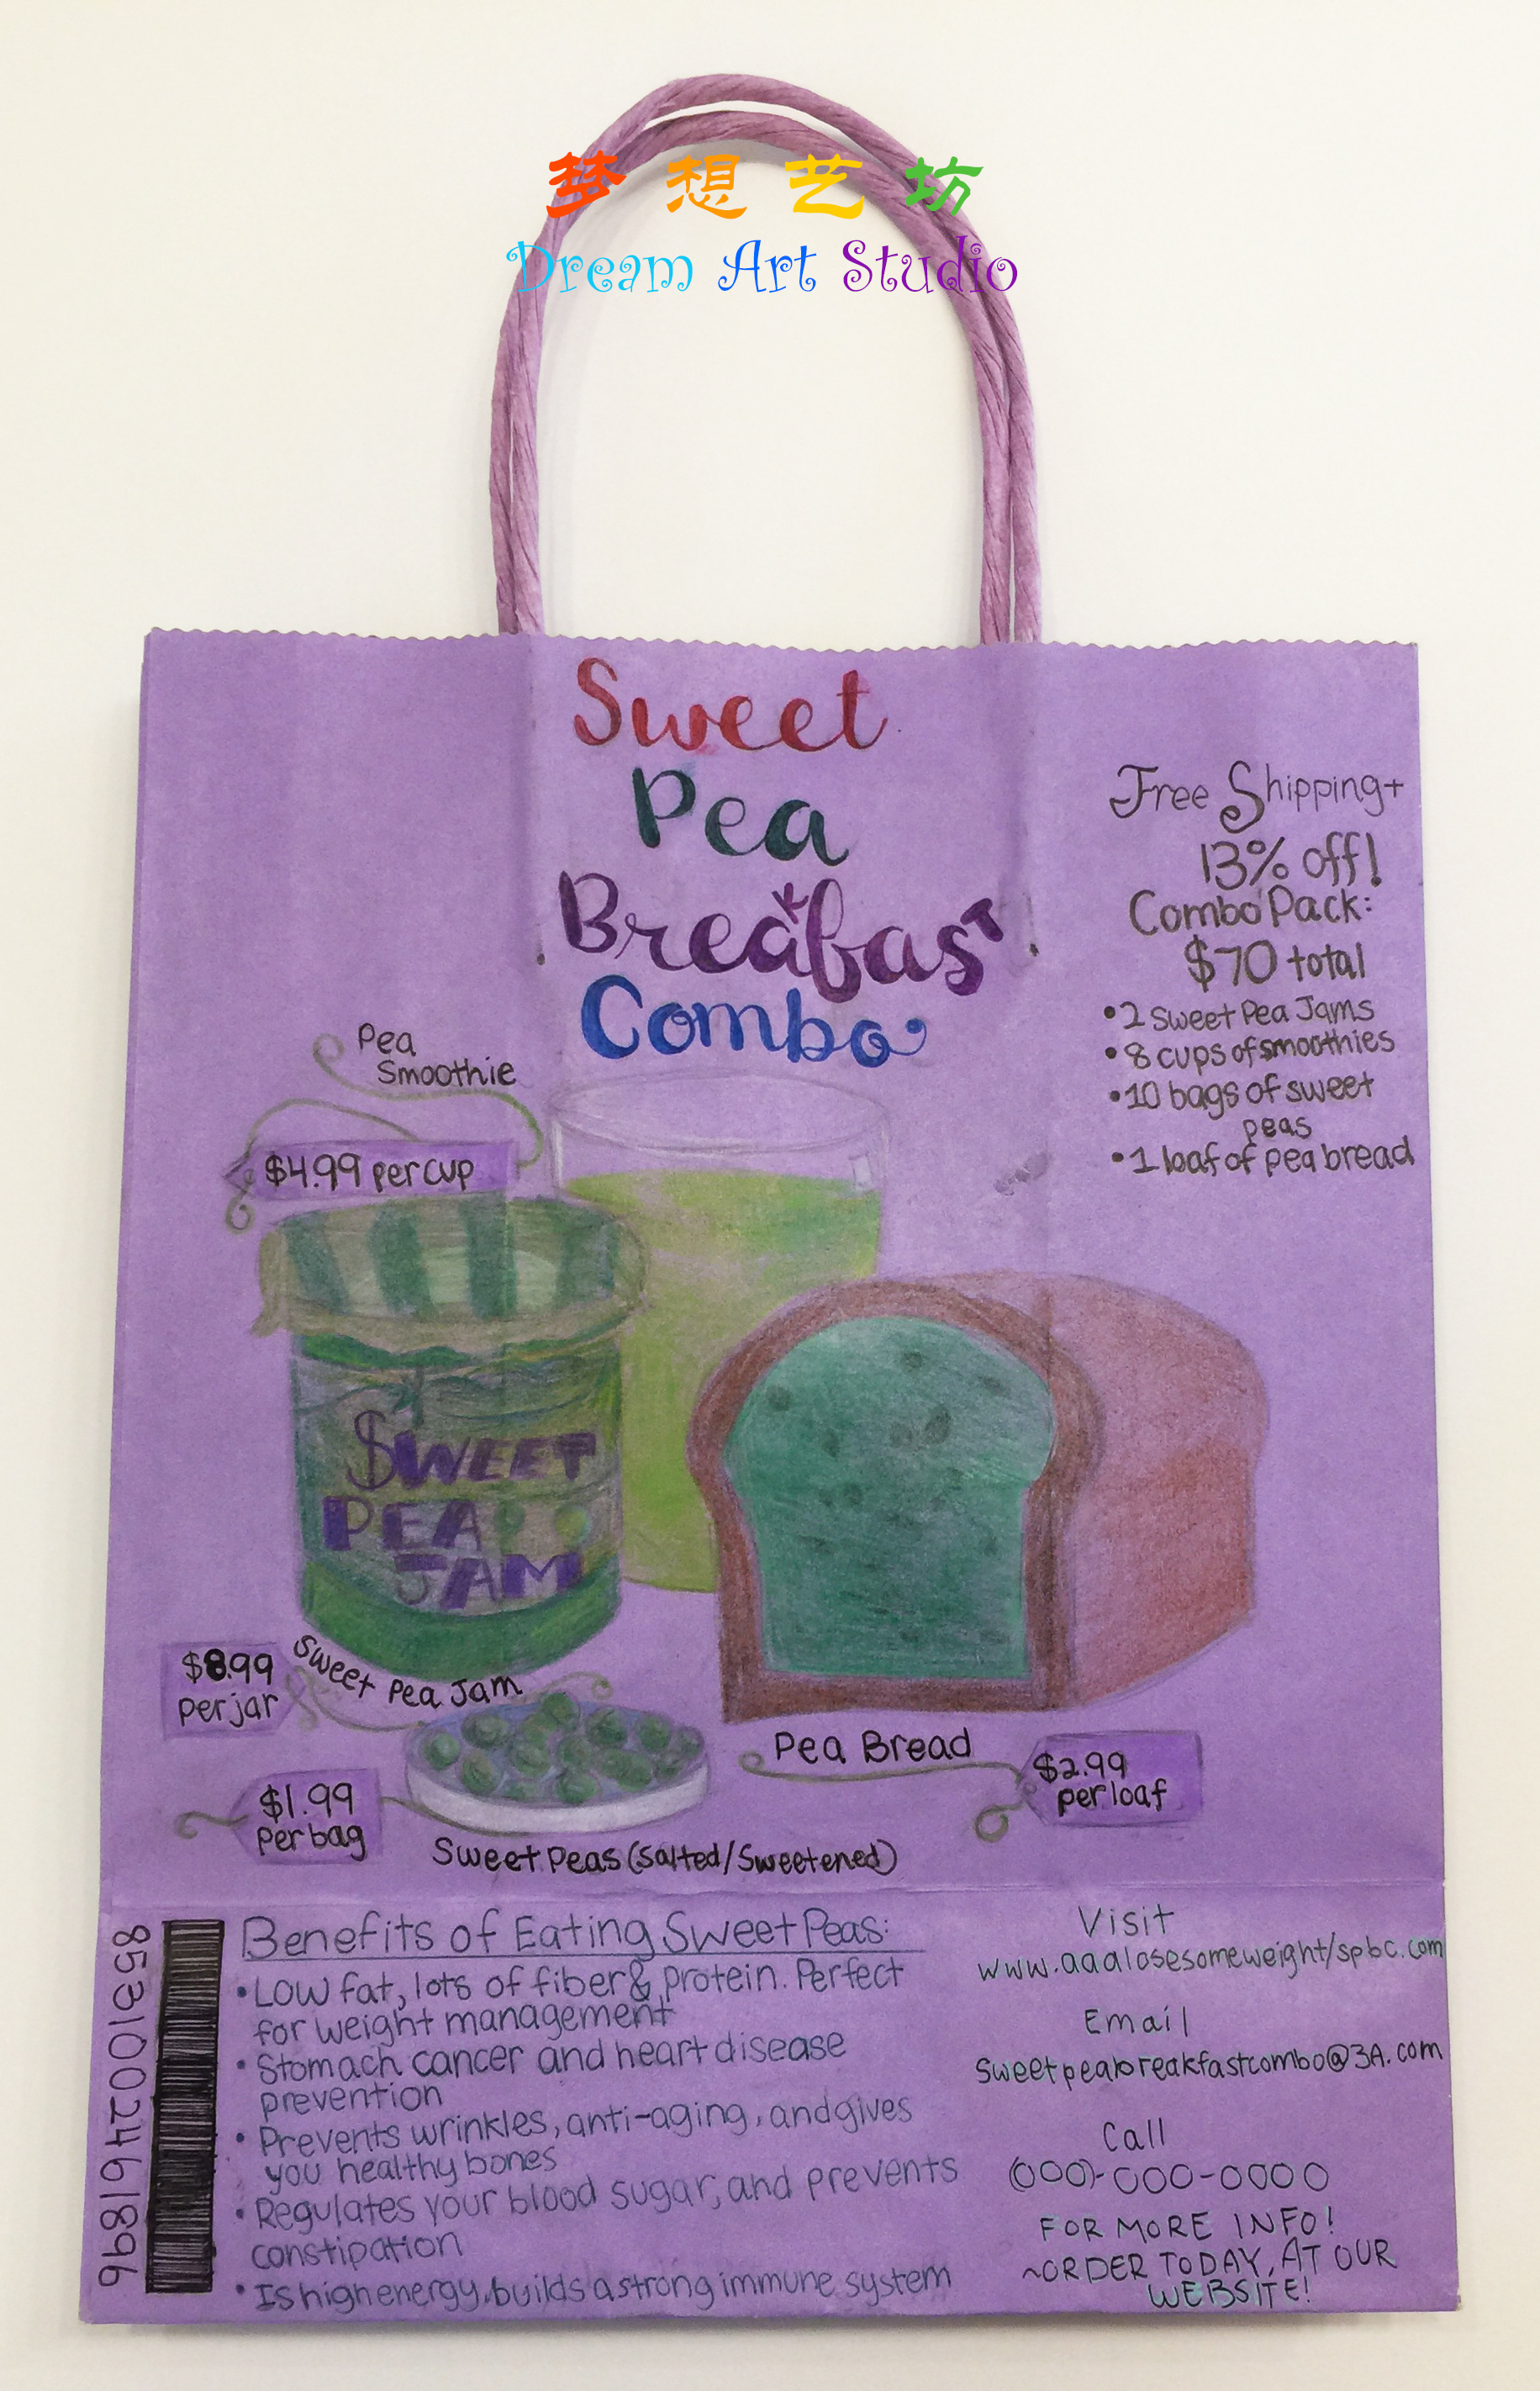 梦想艺坊
Dream Art Studio
Sweet
Pea
Breakfast
Combo
Free Shipping+
13% off!
Combo Pack:
$70 total
•2 Sweet Pea Jams
•8 cups of smoothies
•10 bags of sweet
peas
•1 loaf of pea bread
Pea
Smoothie
$4.99 per cup
$WEET
PEA
JAM
$8.99
per jar
Sweet Pea Jam
$1.99
per bag
Sweet Peas (Salted/Sweetened)
Pea Bread
$2.99
per loaf
8531002461896
Benefits of Eating Sweet Peas:
•Low fat, lots of fiber & protein. Perfect
for weight management
•Stomach cancer and heart disease
prevention
•Prevents wrinkles, anti-aging, and gives
you healthy bones
•Regulates your blood sugar, and prevents
constipation
•Is high energy, builds a strong immune system
Visit
www.aaalosesomeweight/spbc.com
Email
sweetpeabreakfastcombo@3A.com
Call
(000)-000-0000
FOR MORE INFO!
~ORDER TODAY, AT OUR
WEBSITE!